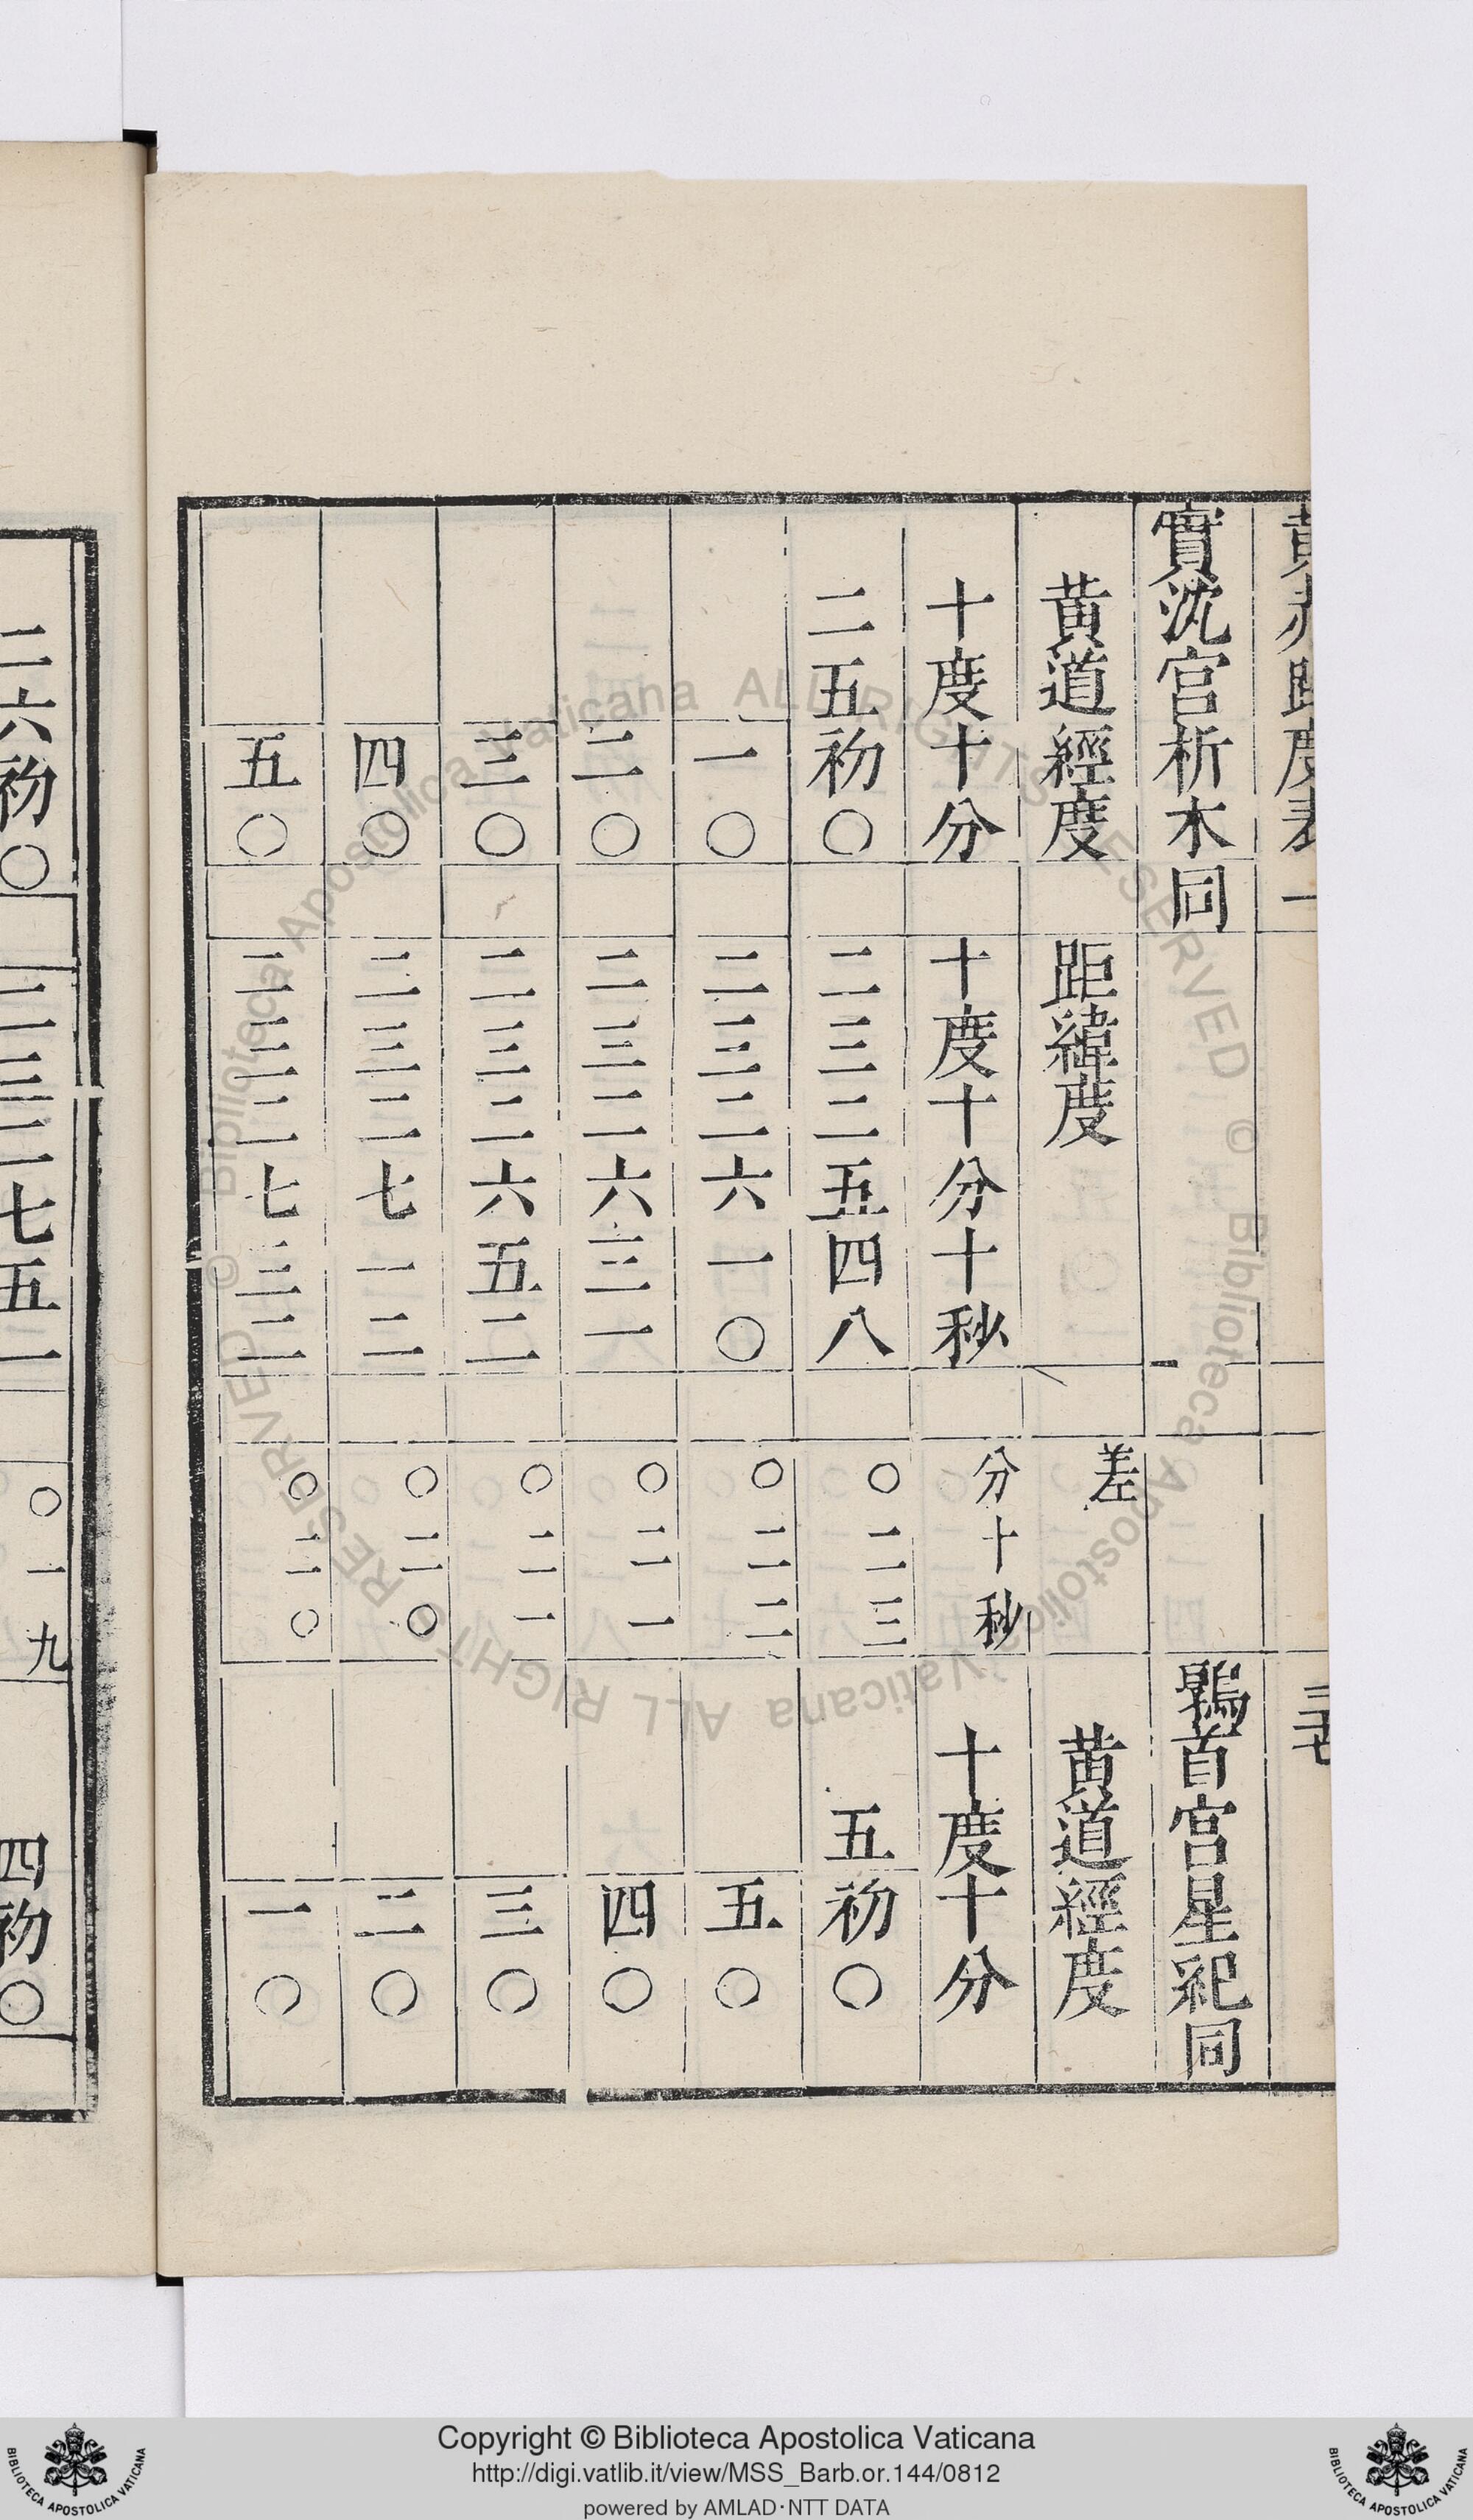 黄赤距度表一
實沈宮析木同 鶉首宮星紀同
黄道經度 距緯度 差 黄道經度
十度十分 十度十分十秒 分十秒 十度十分
二五初〇 二三二五四八 〇二三 五初〇
一〇 二三二六一〇 〇二二 五〇
二〇 二三二六三一 〇二一 四〇
三〇 二三二六五二 〇二一 三〇
四〇 二三二七一二 〇二〇 二〇
五〇 二三二七三二 〇二〇 一〇
二六初〇 二三二七五一 〇一九 四初〇
© Biblioteca Apostolica Vaticana ALL RIGHTS RESERVED © Biblioteca Apostolica Vaticana ALL RIGHTS RESERVED
Copyright © Biblioteca Apostolica Vaticana
http://digi.vatlib.it/view/MSS_Barb.or.144/0812
powered by AMLAD·NTT DATA
BIBLIOTECA APOSTOLICA VATICANA
BIBLIOTECA APOSTOLICA VATICANA